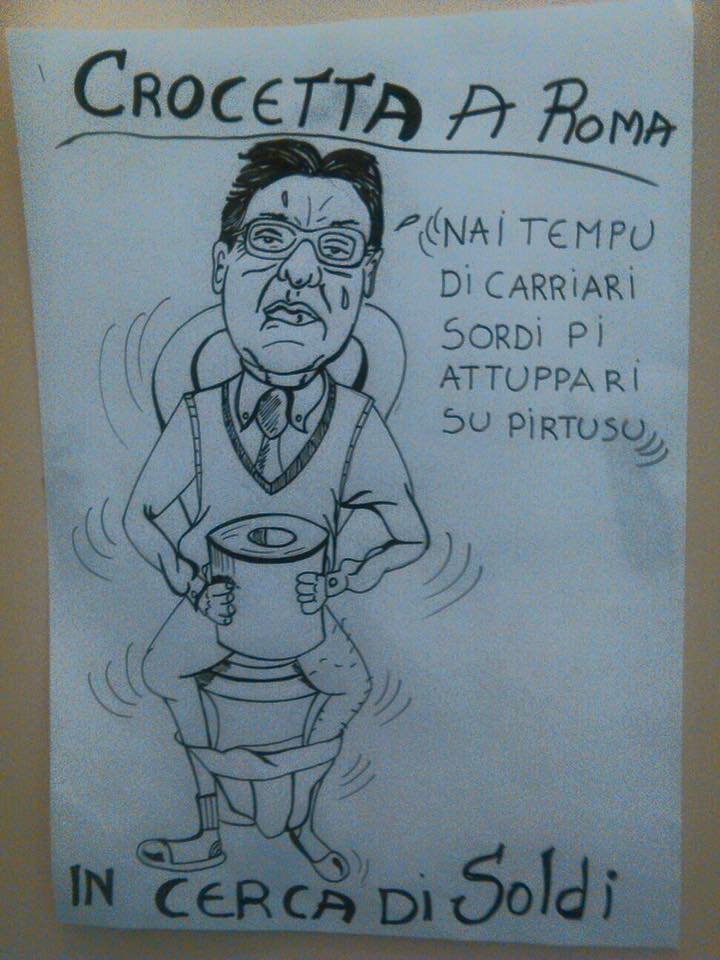 CROCETTA A ROMA
NAI TEMPU
DI CARRIARI
SORDI PI
ATTUPPARI
SU PIRTUSU
IN CERCA DI Soldi